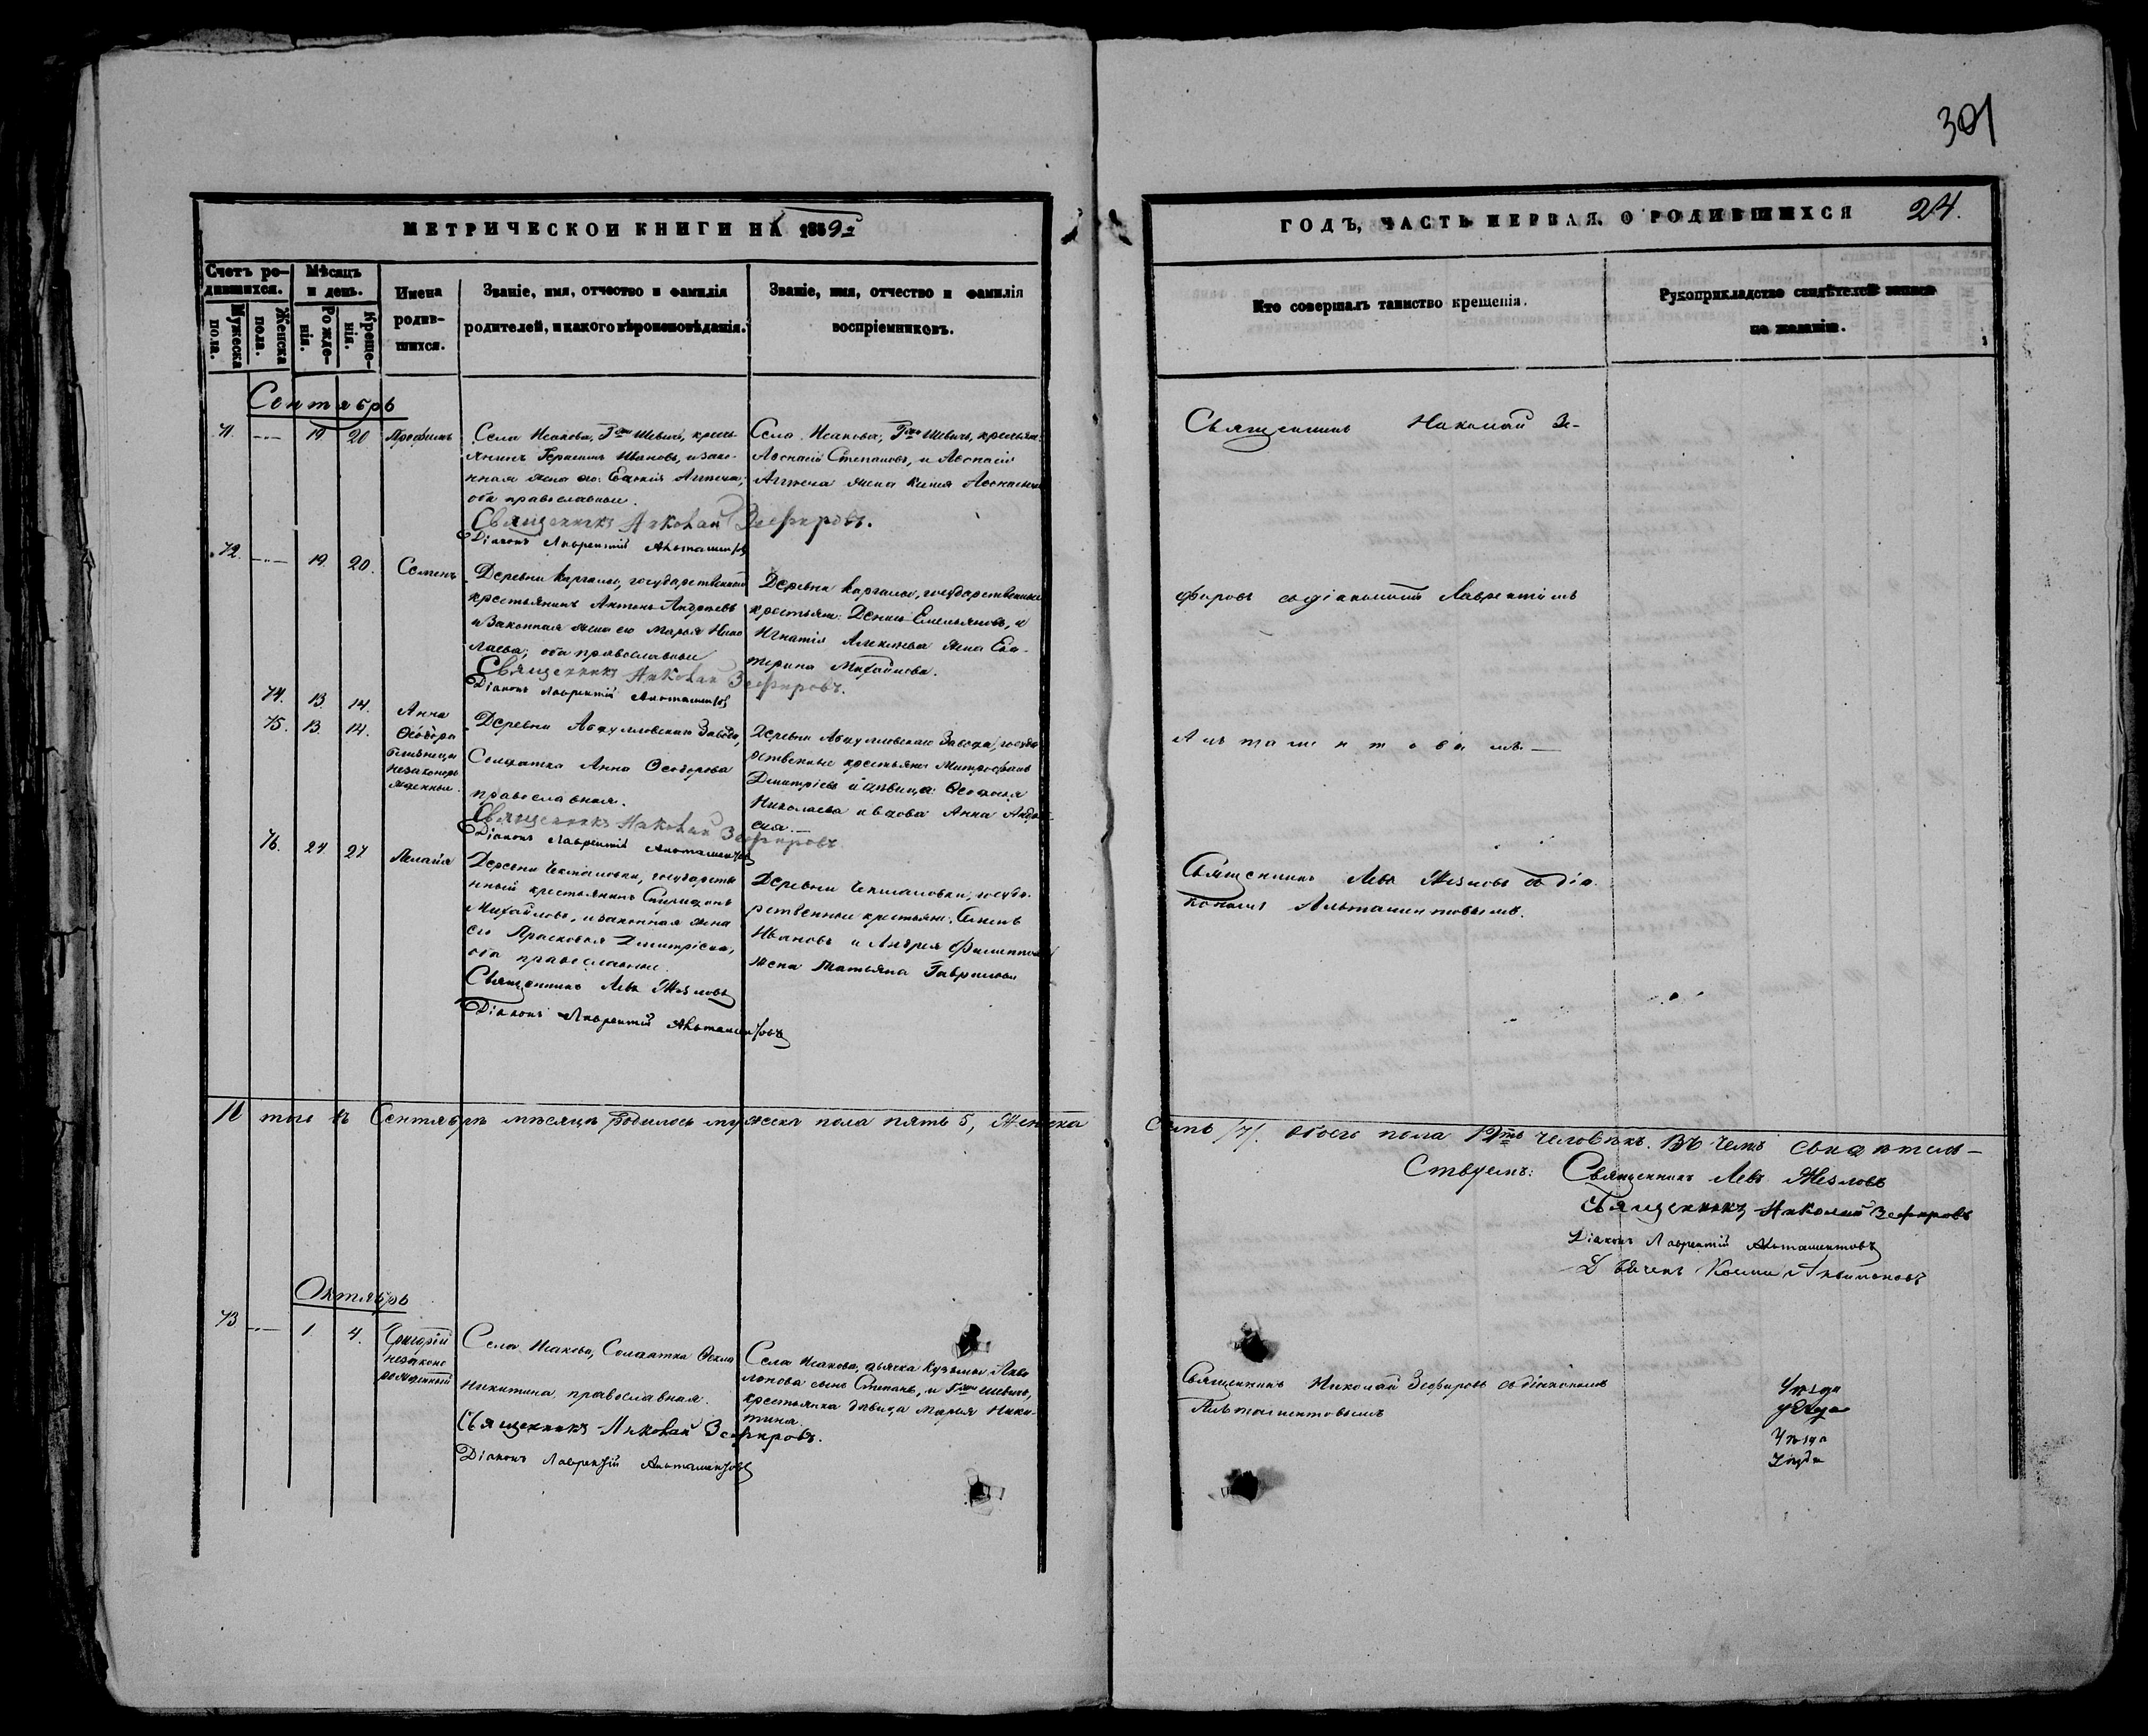 301
МЕТРИЧЕСКОЙ КНИГИ НА 1859й
ГОДЪ, ЧАСТЬ ПЕРВАЯ. О РОДИВШИХСЯ
24.
Счетъ ро-
дившихся.
Мѣсяцъ
и день.
Мужеска
пола.
Женска
пола.
Рожде-
нія.
Креще-
нія.
Имена
родив-
шихся.
Званіе, имя, отчество и фамилія
родителей, и какого вѣроисповѣданія.
Званіе, имя, отчество и фамилія
воспріемниковъ.
Кто совершалъ таинство крещенія.
Рукоприкладство свидѣтелей записи
по желанію.
Сентябрь
71. 19 20 Трофимъ
Села Исакова, крестья-
янинъ Герасимъ Ивановъ, и зако-
нная жена его Евдокія
оба православные.
Священникъ Николай Зефировъ.
Діаконъ Лаврентій Альтаментовъ
Села Исакова, крестьяне
Афонасій Степановъ, и Афонасія
жена Ксенія
Священникъ Николай Зе-
72. 19. 20. Семенъ
Деревни Каргалы, государственный
крестьянинъ Антонъ Андреевъ
и законная жена его Марья Нико
лаева; оба православные
Священникъ Николай Зефировъ.
Діаконъ Лаврентій Альтаментовъ
Деревни Каргалы, государственные
крестьяне: Денисъ Емельяновъ, и
Игнатія Алексѣева жена Ека-
терина Михайлова.
фировъ съ діакономъ Лаврентіемъ
74. 13. 14. Анна
75. 13. 14. Ѳеодора
близнецы
незаконоро
жденные.
Деревни Абдулловскаго Завода,
Солдатка Анна Ѳеодорова
православная.
Священникъ Николай Зефировъ.
Діаконъ Лаврентій Альтаментовъ
Деревни Абдулловскаго Завода, госуда
рственные крестьяне Митрофанъ
Димитріевъ и дѣвица
Николаева и вдова Анна Андре
ева.
Альтаментовымъ
76. 24. 27 Пелагія
Деревни Чекмаловки, государстве
нный крестьянинъ Спиридонъ
Михайловъ, и законная жена
его Прасковья Димитріева,
оба православные.
Священникъ Левъ Жезловъ
Діаконъ Лаврентій Альтаментовъ
Деревни Чекмаловки, госуда-
рственные крестьяне: Семенъ
Ивановъ и Андрея Филиппова
жена Татьяна Гаврилова
Священникъ Левъ Жезловъ съ діа
кономъ Альтаментовымъ.
Итого въ Сентябрѣ мѣсяцѣ родилось мужеска пола пять 5, женска
семь /7/. обоего пола 12ть человѣкъ. Въ чемъ свидѣтель-
ствуемъ: Священникъ Левъ Жезловъ
Священникъ Николай Зефировъ
Діаконъ Лаврентій Альтаментовъ
Дьячекъ Косма
Октябрь
73. 1. 4. Григорій
незаконо
рожденный
Села Исакова, Солдатка Ѳекла
Никитина, православная.
Священникъ Николай Зефировъ.
Діаконъ Лаврентій Альтаментовъ
Села Исакова, дьячка Кузьмы
сынъ Степанъ, и
крестьянка дѣвица Марья Ники-
тина.
Священникъ Николай Зефировъ съ діакономъ
Альтаментовымъ